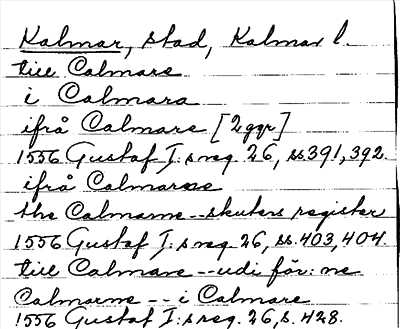 Kalmar, stad, Kalmar l.
till Calmare
i Calmara
ifrå Calmare [2ggr]
1556 Gustaf I:s reg. 26, ss 391, 392.
ifrå Calmarne
the Calmarne--skuters register
1556 Gustaf I:s reg. 26, ss. 403, 404.
till Calmare--udi för:ne
Calmarne -- i Calmare
1556 Gustaf I:s reg. 26, s. 428.